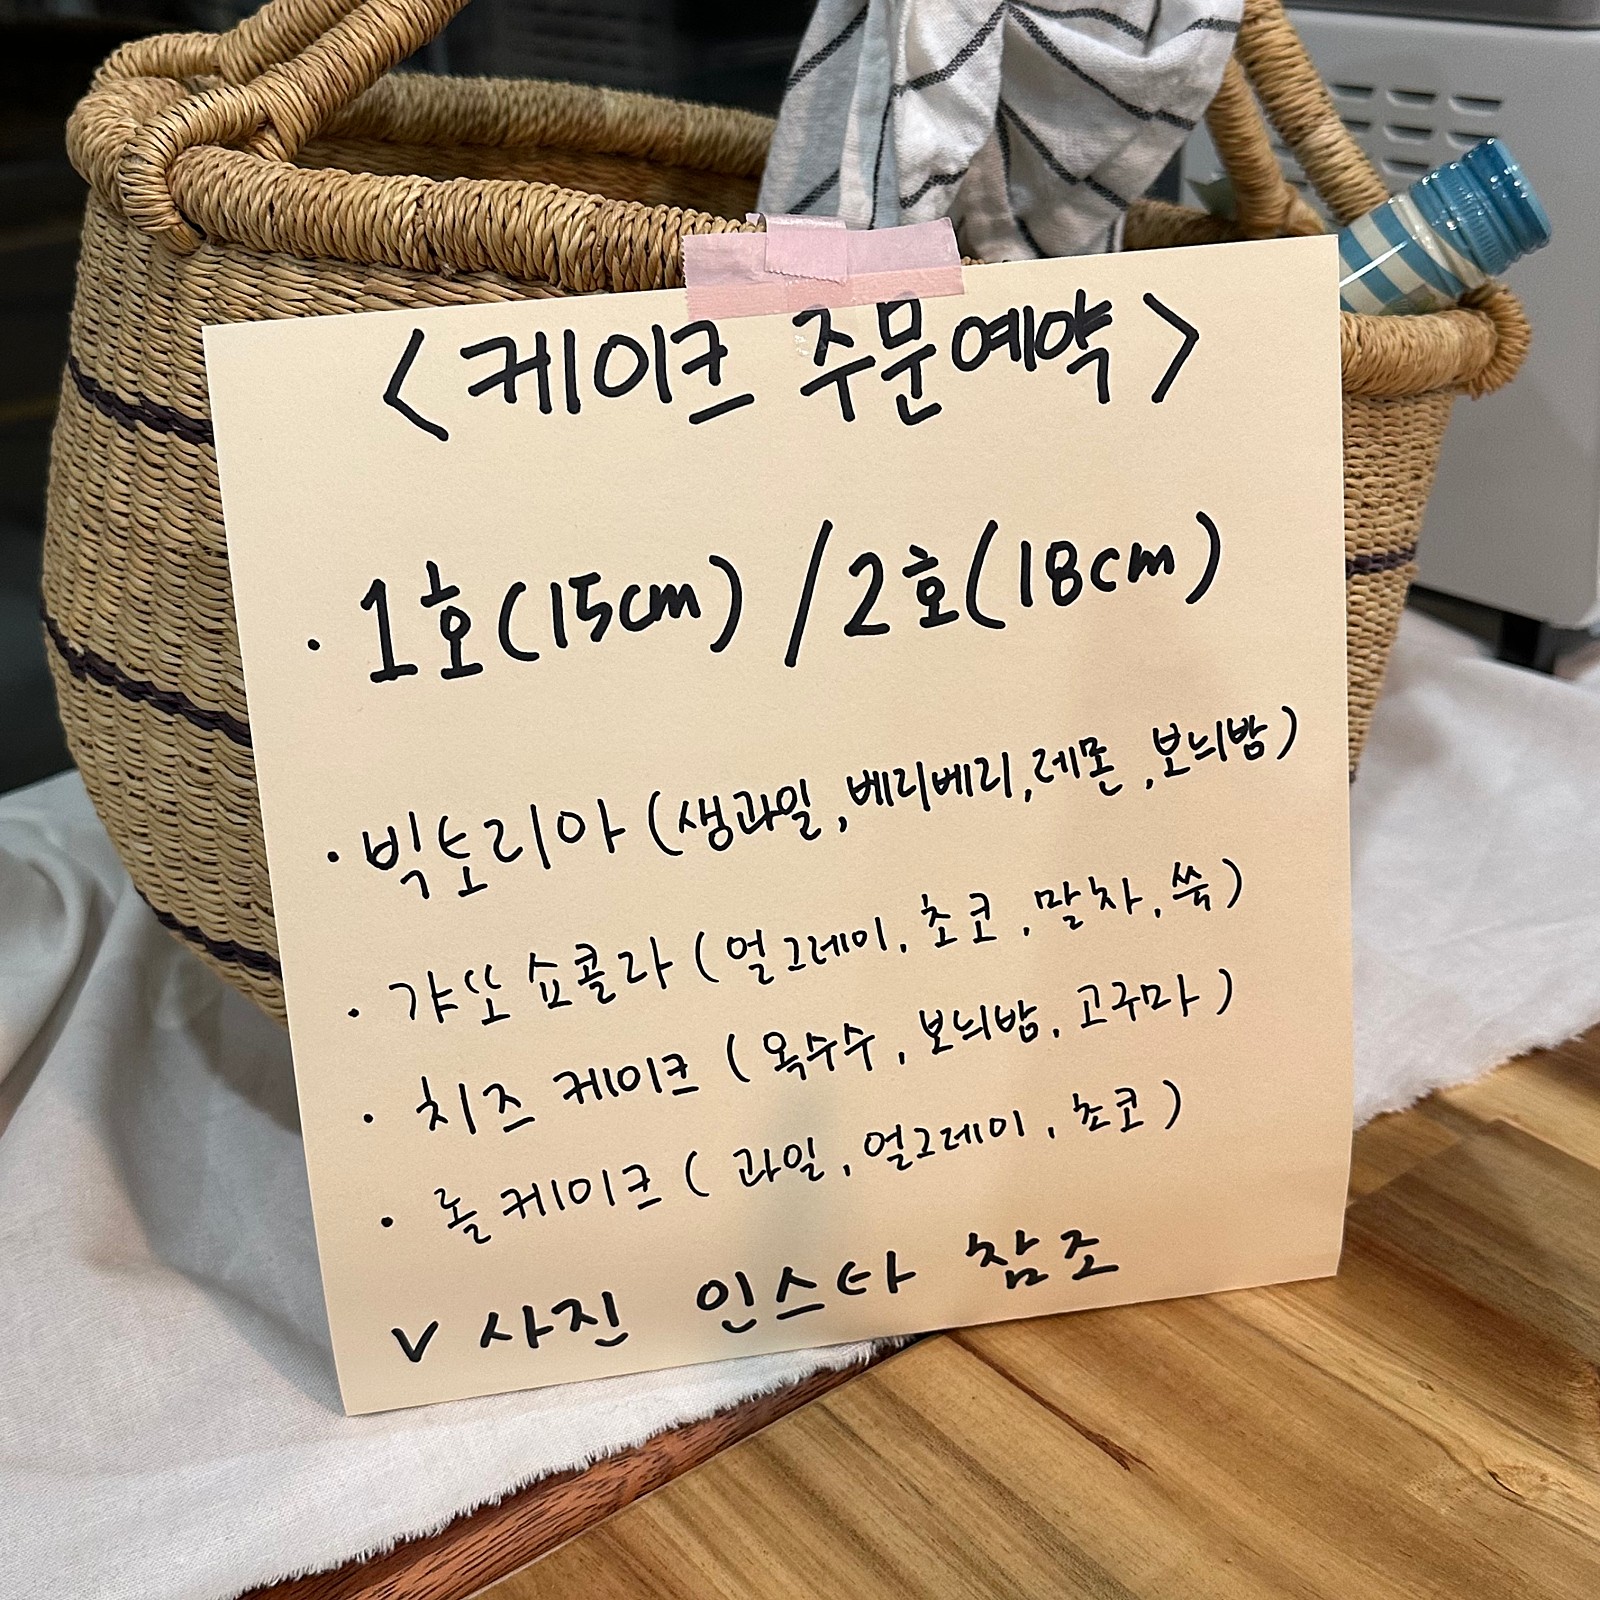 <케이크 주문예약>
· 1호(15cm) / 2호(18cm)
· 빅토리아 (생과일, 베리베리, 레몬, 보늬밤)
· 갸또 쇼콜라 (얼그레이, 초코, 말차, 쑥)
· 치즈 케이크 (옥수수, 보늬밤, 고구마)
· 롤 케이크 (과일, 얼그레이, 초코)
v 사진 인스타 참조